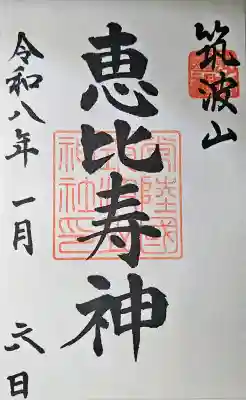 筑波山
恵比寿神
令和八年 一月 六日